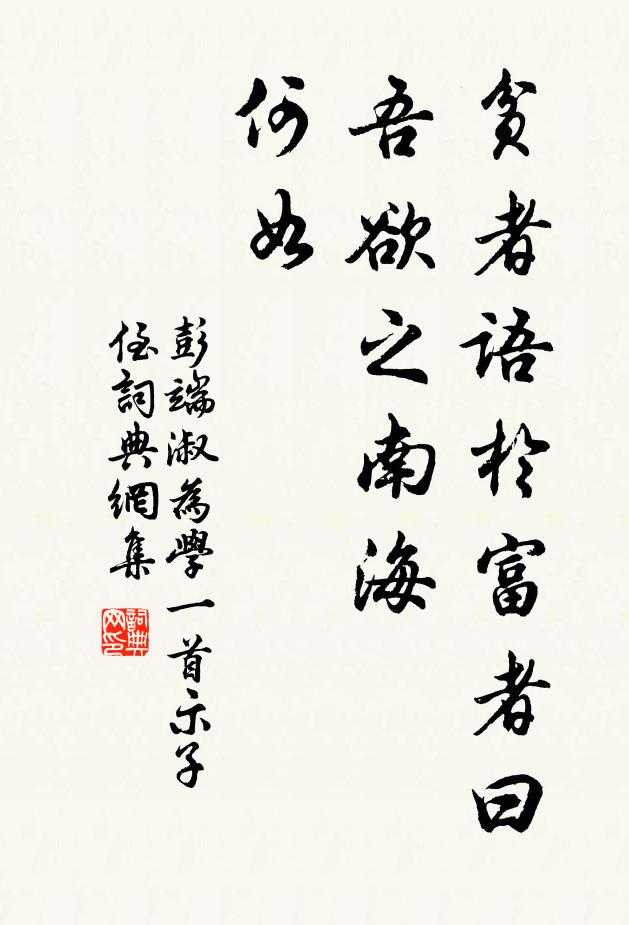 貧者語於富者曰
吾欲之南海
何如
彭端淑為學一首示子
侄詞典網集
詞典
网印